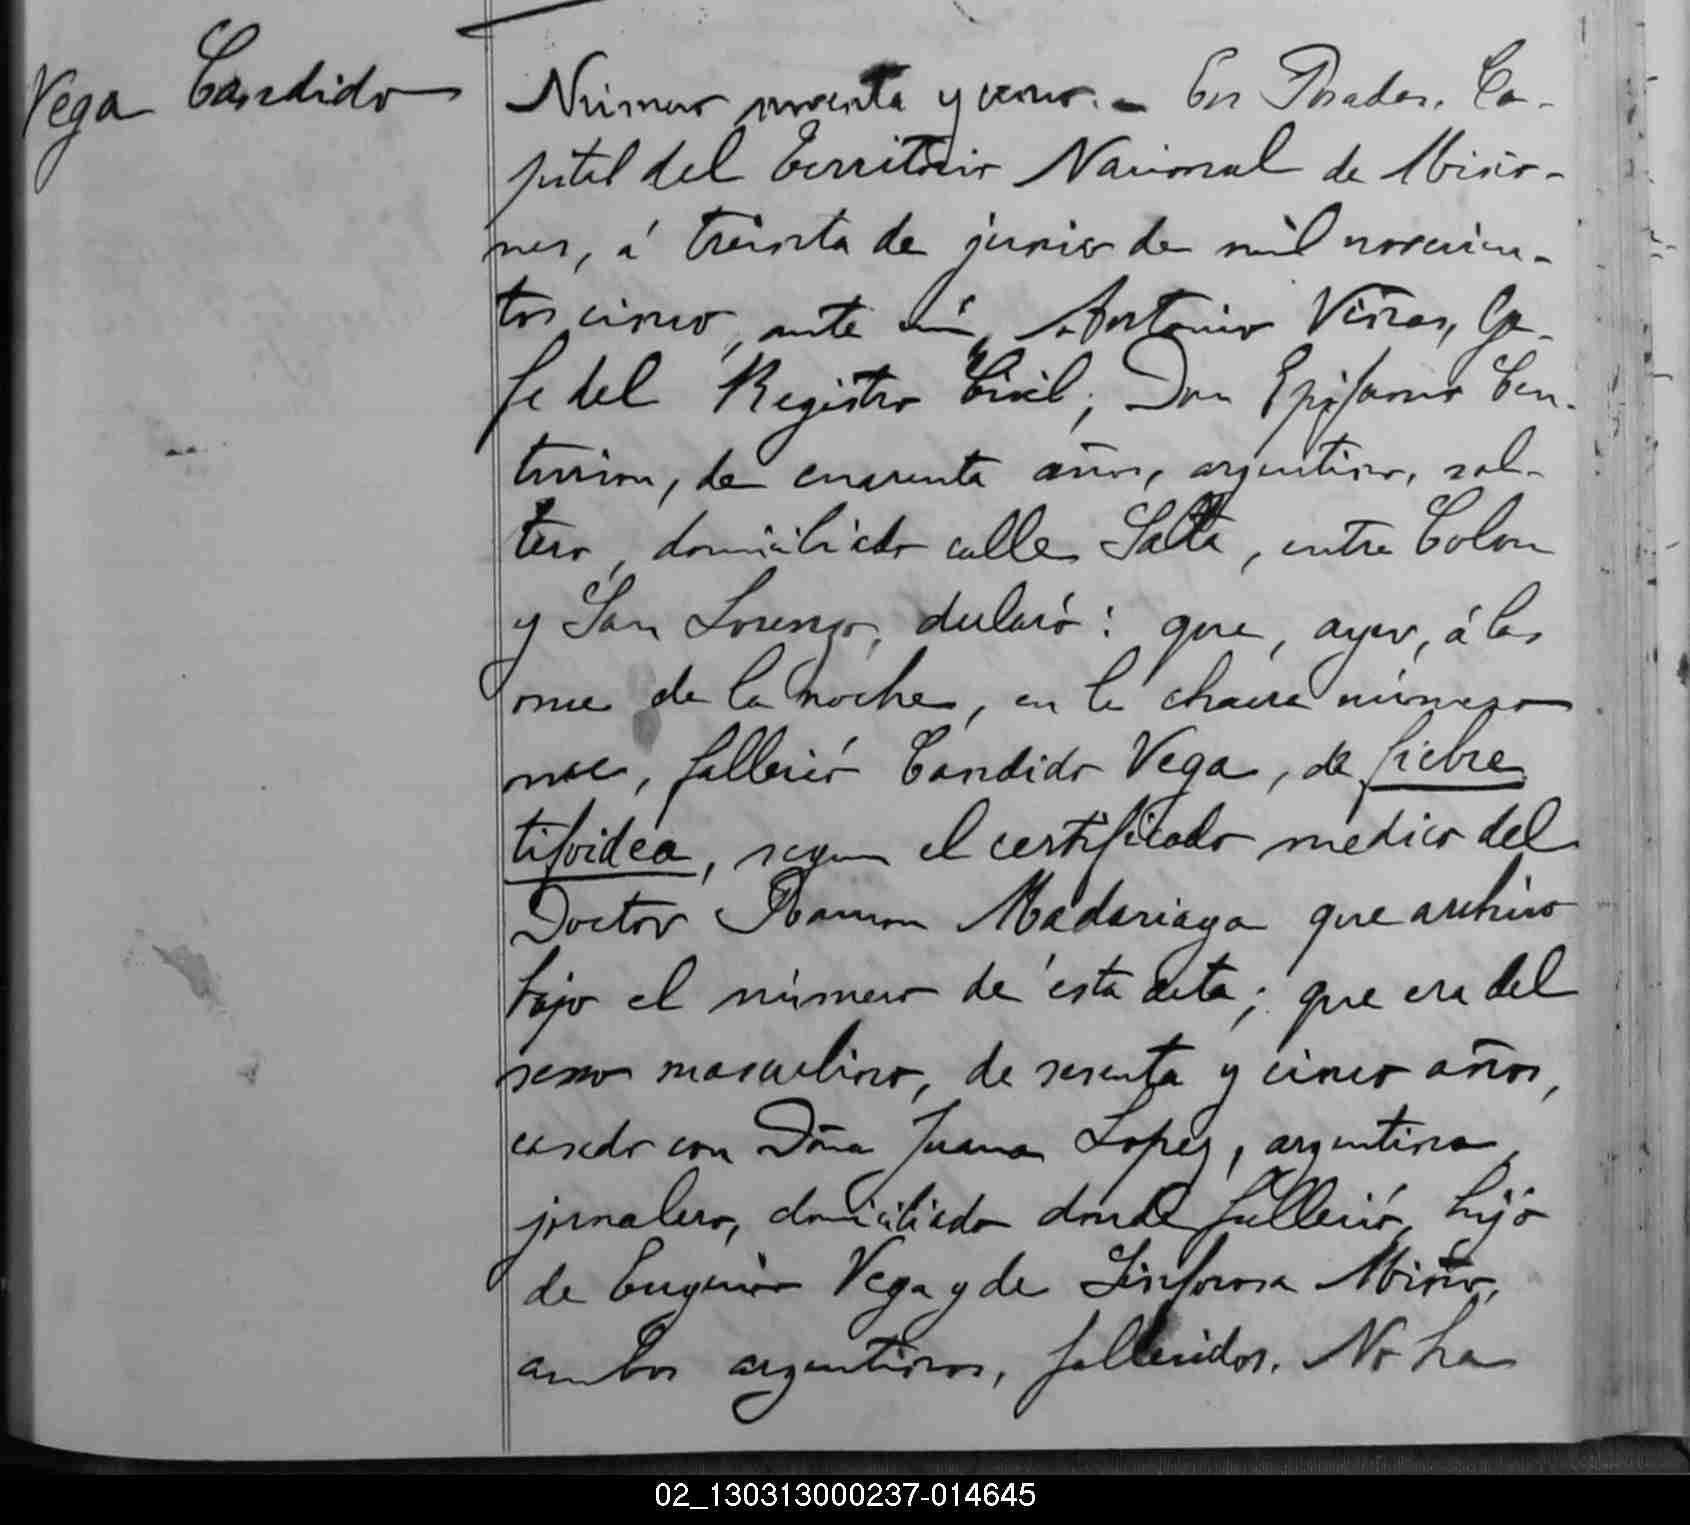 Vega Candido
Número noventa y cinco.- En Posadas, Ca-
pital del Territorio Nacional de Misio-
nes, á treinta de junio de mil novecien-
tos cinco, ante mí, Antonio Viñas, Ge-
fe del Registro Civil, Don Epifanio Cen-
turion, de cuarenta años, argentino, sol-
tero, domiciliado calle Salta, entre Colon
y San Lorenzo, declaró: que, ayer, á las
once de la noche, en la chacra número
once, falleció Candido Vega, de fiebre
tifoidea, segun el certificado medico del
Doctor Ramon Madariaga que archivo
bajo el número de ésta acta; que era del
sexo masculino, de sesenta y cinco años,
casado con Doña Juana Lopez, argentina,
jornalero, domiciliado donde falleció, hijo
de Eugenio Vega y de Sinforosa Miño,
ambos argentinos, fallecidos. No ha
02_130313000237-014645